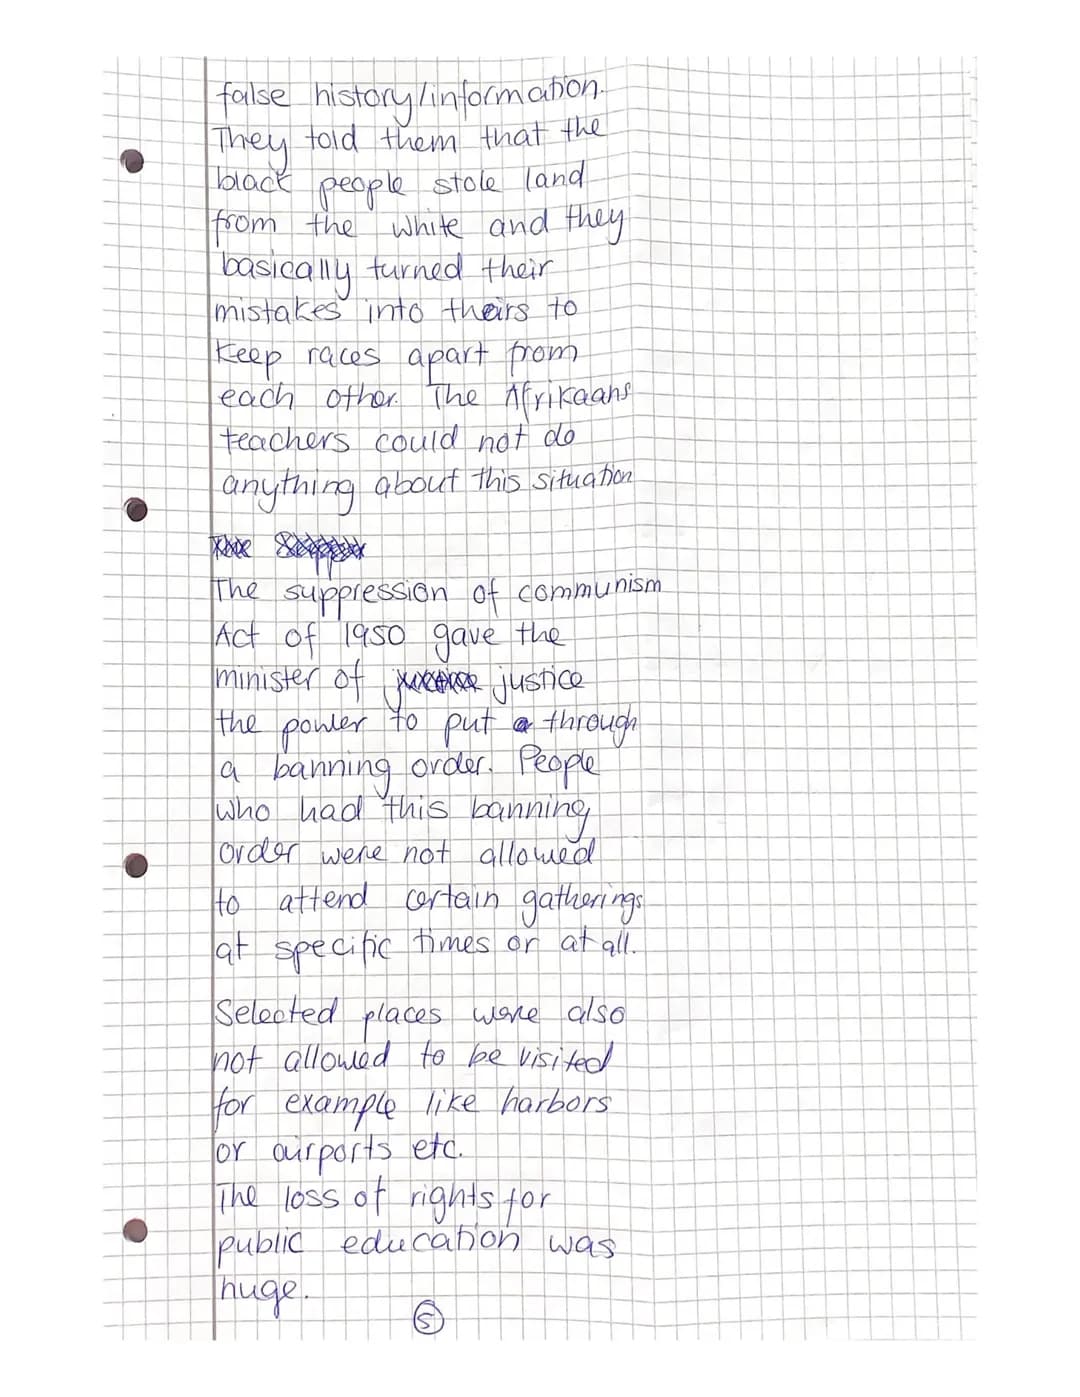 false history/information.
They told them that the
black people stole land
from the white and they
basically turned their
mistakes into theirs to
keep races apart from
each other. The Afrikaans
teachers could not do
anything about this situation
The
The suppression of communism
Act of 1950 gave the
minister of justice
the power to put a through
a banning order. People
who had this banning
order were not allowed
to attend certain gatherings
at specific times or at all.
Selected places were also
not allowed to be visited
for example like harbors
or airports etc.
The loss of rights for
public education was
huge.
5